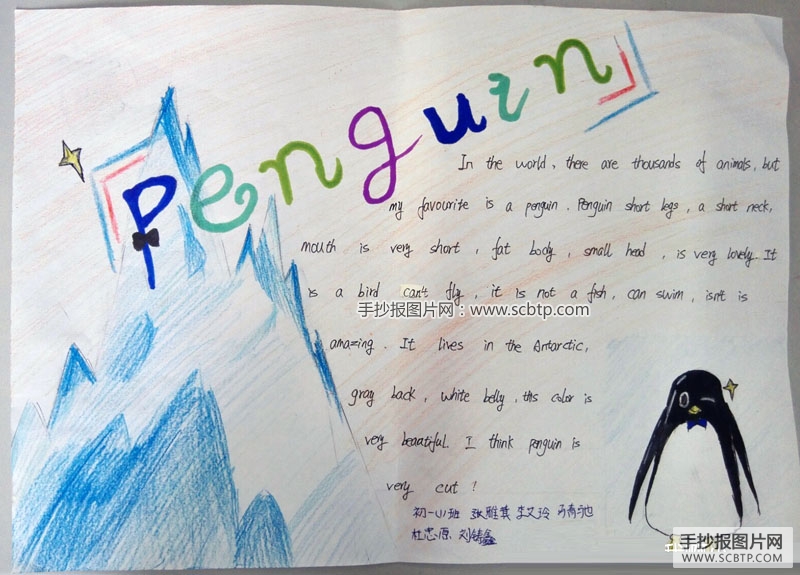 Penguin
In the world, there are thousands of animals, but
my favourite is a penguin. Penguin short legs, a short neck,
mouth is very short, fat body, small head, is very lovely. It
is a bird can't fly, it is not a fish, can swim, isn't is
手抄报图片网：www.scbtp.com
amazing. It lives in the Antarctic,
gray back, white belly, this color is
very beautiful. I think penguin is
very cut!
初一(1)班 张雅茸 李文玲
杜忠源 刘铸鑫
手抄报图片网
WWW.SCBTP.COM